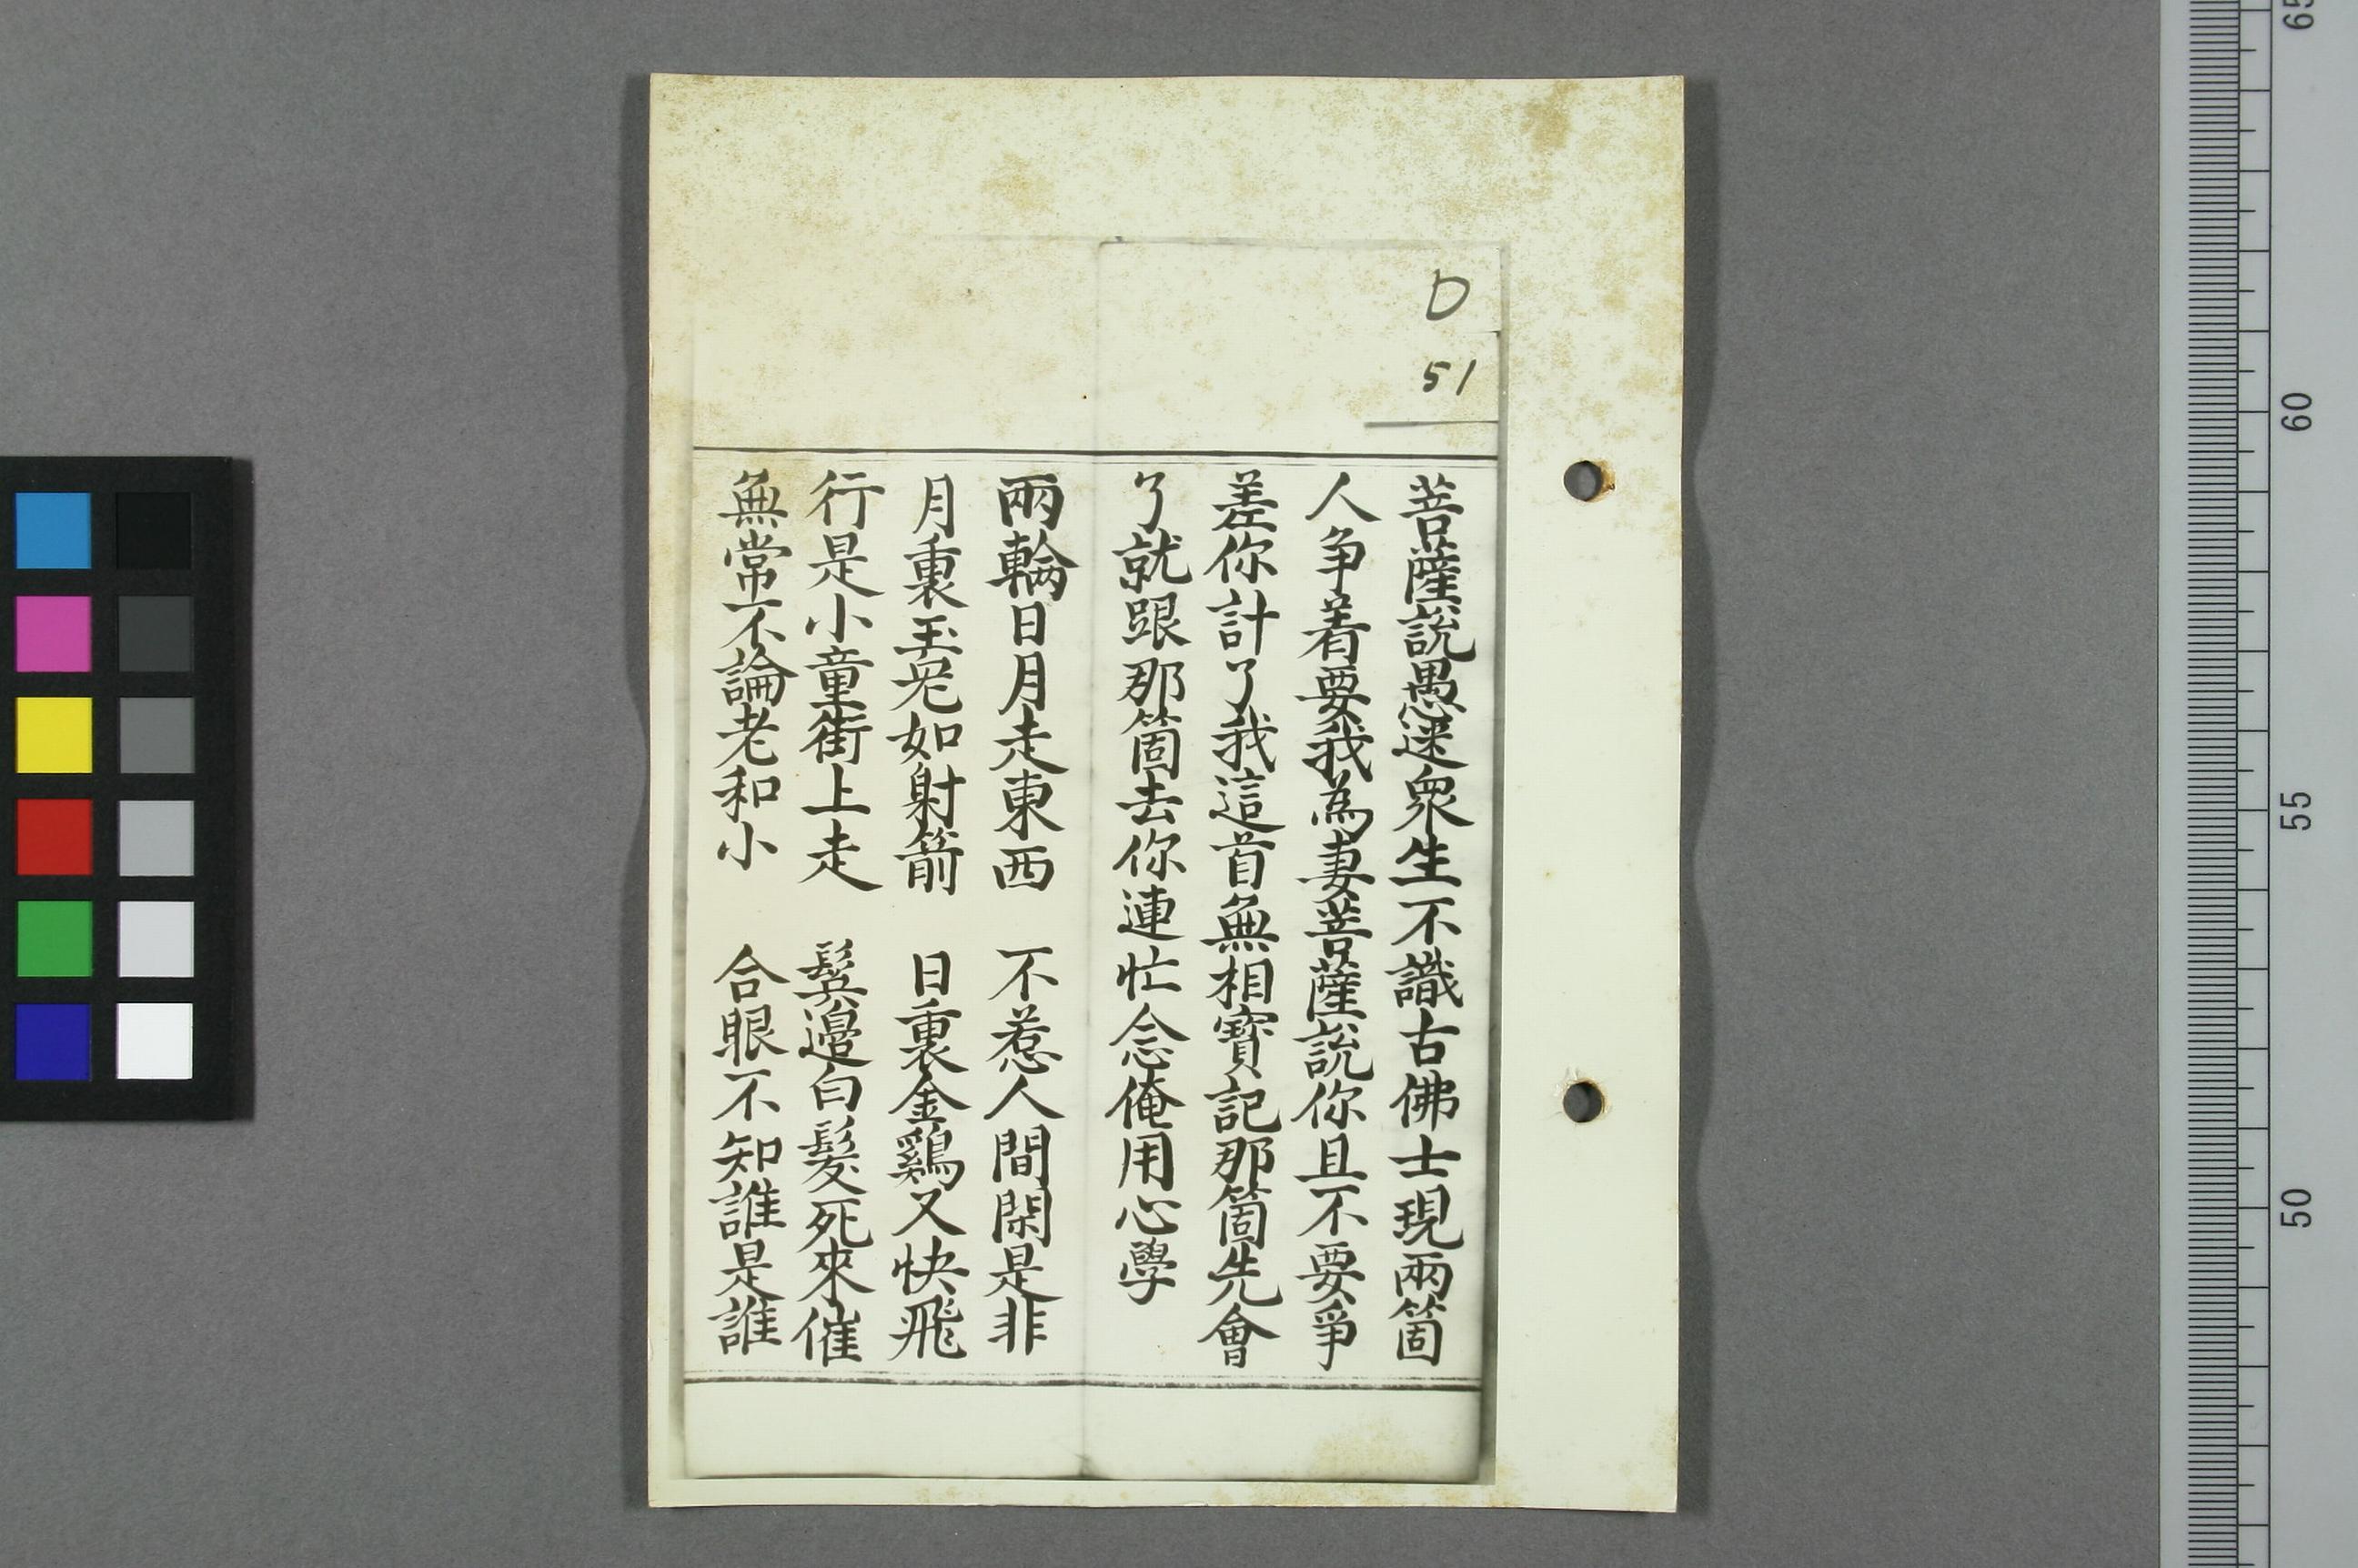 D
51
菩薩說愚迷衆生不識古佛士現兩箇
人争着要我為妻菩薩說你且不要爭
差你計了我這首無相寶記那箇先會
了就跟那箇去你連忙念俺用心學
兩輪日月走東西　不惹人間閑是非
月裏玉兎如射箭　日裏金鷄又快飛
行是小童街上走　鬂邉白髮死來催
無常不論老和小　合眼不知誰是誰
65
60
55
50